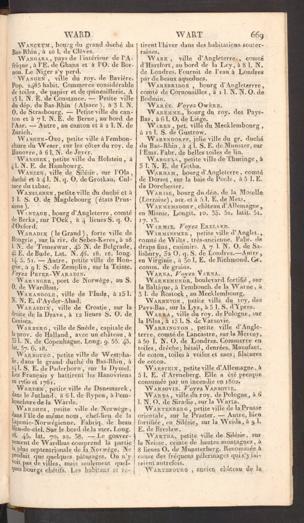 WARD
WART
669
WANCKUM, bourg du grand duché du
Bas-Rhin, à 10 l. de Clèves.
WANGARA, pays de l'intérieur de l'A-
frique, à l'E. de Ghana et à l'O. de Bor-
nou. Le Niger s'y perd.
WANGEN, ville du roy. de Bavière.
Pop. 1485 habit. Commerce considérable
de toiles, de papier et de quincaillerie, à
5 l. N. E. de Constance. — Petite ville
du dép. du Bas-Rhin (Alsace), à 3 l. N.
O. de Strasbourg. — Petite ville du can-
ton et à 7 l. N. E. de Berne, au bord de
l'Aar. — Autre, au canton et à 2 l. N. de
Zurich.
WANGER-OOG, petite ville à l'embou-
chure du Weser, sur les côtes du roy. de
Hanovre, à 6 l. N. de Jever.
WANSBEK, petite ville du Holstein, à
1 l. N. E. de Hambourg.
WANSEN, ville de Silésie, sur l'Ola,
duché et à 4 l. N. q. O. de Grotkau. Cul-
ture du tabac.
WANZLEBEN, petite ville du duché et à
2 l. S. O. de Magdebourg (états Prus-
siens).
WANTAGE, bourg d'Angleterre, comté
de Berks, sur l'Ock, à 4 lieues S. q. O.
d'Oxford.
WARADIN (le Grand), forte ville de
Hongrie, sur la riv. de Sebes-Keres, à 28
l. N. de Temeswar, 45 N. de Belgrade,
E. de Bude. Lat. N. 46. 18. 16. long.
14. 51. — Autre, petite ville de Hon-
grie, à 9 l. S. de Zemplin, sur la Teisse.
Voyez PETER-WARADIN.
WARANGER, port de Norwège, au S.
E. de Wardhuys.
WARANGOLE, ville de l'Inde, à 15 l.
S. N. E. d'Ayder-Abad.
WARASDIN, ville de Croatie, sur la
droite de la Drave, à 12 lieues S. O. de
Canisca.
WARBERG, ville de Suède, capitale de
la prov. de Halland, avec un château, à
l. N. de Copenhague.
WARBOURG, petite ville de Westpha-
lie, dans le grand duché du Bas-Rhin, à
l. S. E. de Paderborn, sur la Dymel.
Les Français y battirent les Hanovriens
en 1760 et 1761.
WARDEN, petite ville de Danemarck,
dans le Jutland, à 6 l. de Rypen, à l'em-
bouchure de la Warde.
WARDHUS, petite ville de Norwège,
dans l'île de même nom, chef-lieu de la
Laponie-Norwégienne. Fabriq. de beau
lin-de-ciel. Sur le bord de la mer. Long.
— Le gouver-
nement de Wardhus comprend la partie
la plus septentrionale de la Norwège. Ne
produit que quelques pâturages. On n'y
voit pas de villes, mais seulement quel-
ques bourgs chétifs. Les habitans se re-
tirent l'hiver dans des habitations souter-
raines.
WARE, ville d'Angleterre, comté
d'Hartfort, au bord de la Ley, à 8 l. N.
de Londres. Fournit de l'eau à Londres
par de beaux aqueducs.
WAREBRIDGE, bourg d'Angleterre,
comté de Cornouailles, à 2 l. N. N. O. de
Bodmin.
WARÉE. Voyez OWÈRE.
WAREMME, bourg du roy. des Pays-
Bas, à 6 l. O. de Liége.
WAREN, pet. ville du Mecklenbourg,
à 12 l. S. de Gustrow.
WARENDORFF, jolie ville du gr. duché
du Bas-Rhin, à 4 l. S. E. de Munster, sur
l'Ems. Fabr. de belles toiles de lin.
WARGULA, petite ville de Thuringe, à
5 l. N. E. de Gotha.
WARHAM, bourg d'Angleterre, comté
de Dorset, sur la baie de Poole, à 5 l. E.
de Dorchester.
WARISE, bourg du dép. de la Moselle
(Lorraine), arr. et à 5 l. E. de Metz.
WARKENSDORF, château d'Allemagne,
en Misnie. Longit. 10. 33. 51. latit. 51.
17. 17.
WARMIE. Voyez ERMLAND.
WARMINSTER, petite ville d'Anglet.,
comté de Wilts, très-ancienne. Fabr. de
draps fins, casimirs. A 7 l. N. O. de Sa-
lisbury, 32 O. q. S. de Londres.—Autre,
en Virginie, à 30 l. E. de Richmond. Gr.
comm. de grains.
WARNA, Voyez VARNA.
WARNEMÜNDE, boulevard fortifié, sur
la Baltique, à l'embouch. de la Warne, à
2 l. de Rostock, au Mecklenbourg.
WARNETON, petite ville du roy. des
Pays-Bas, sur la Lys, à 3 l. S. d'Ypres.
WARRA, ville du roy. de Pologne, sur
la Pilsa, à 13 l. S. de Varsovie.
WARRINGTON, petite ville d'Angle-
terre, comté de Lancastre, sur la Mersey,
à 50 l. N. O. de Londres. Commerce en
toiles, drêche, bétail, denrées. Manufact.
de coton, toiles à voiles et sacs; filatures
de coton.
WARSTEIN, petite ville d'Allemagne, à
3 l. E. d'Arensberg. Elle a été presque
consumée par un incendie en 1802.
WARSOVIE. Voyez VARSOVIE.
WARTA, ville du roy. de Pologne, à 6
l. N. O. de Siradie, sur la Warta.
WARTENBERG, petite ville de la Prusse
orientale, sur le Praster. — Autre, bien
fortifiée, en Silésie, sur la Weida, à 9 l.
E. de Breslaw.
WARTHA, petite ville de Silésie, sur
la Neisse, ceinte de hautes montagnes, à
8 lieues O. de Munsterberg. Renommée à
cause des fréquens pèlerinages qu'y fai-
saient autrefois.
WARTHBOURG, ancien château de la